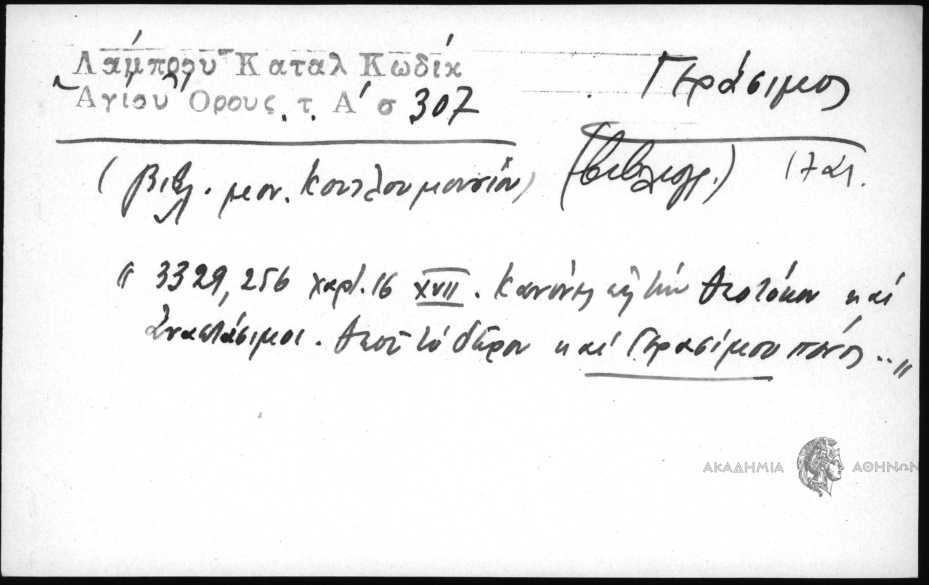 Λάμπρου Καταλ Κωδίκ
Ἁγίου Ὄρους τ. Α΄ σ 307
Γεράσιμος
(Βιβλ. μον. Κουτλουμουσίου)
(βιβλιογρ.) 17 αι.
" 3329,256 χαρτ. 16 XVII. Κανόνες εἰς τὴν Θεοτόκον καὶ
Ἀναστάσιμοι. Θεοῦ τὸ δῶρον καὶ Γερασίμου πόνος .. "
ΑΚΑΔΗΜΙΑ ΑΘΗΝΩΝ